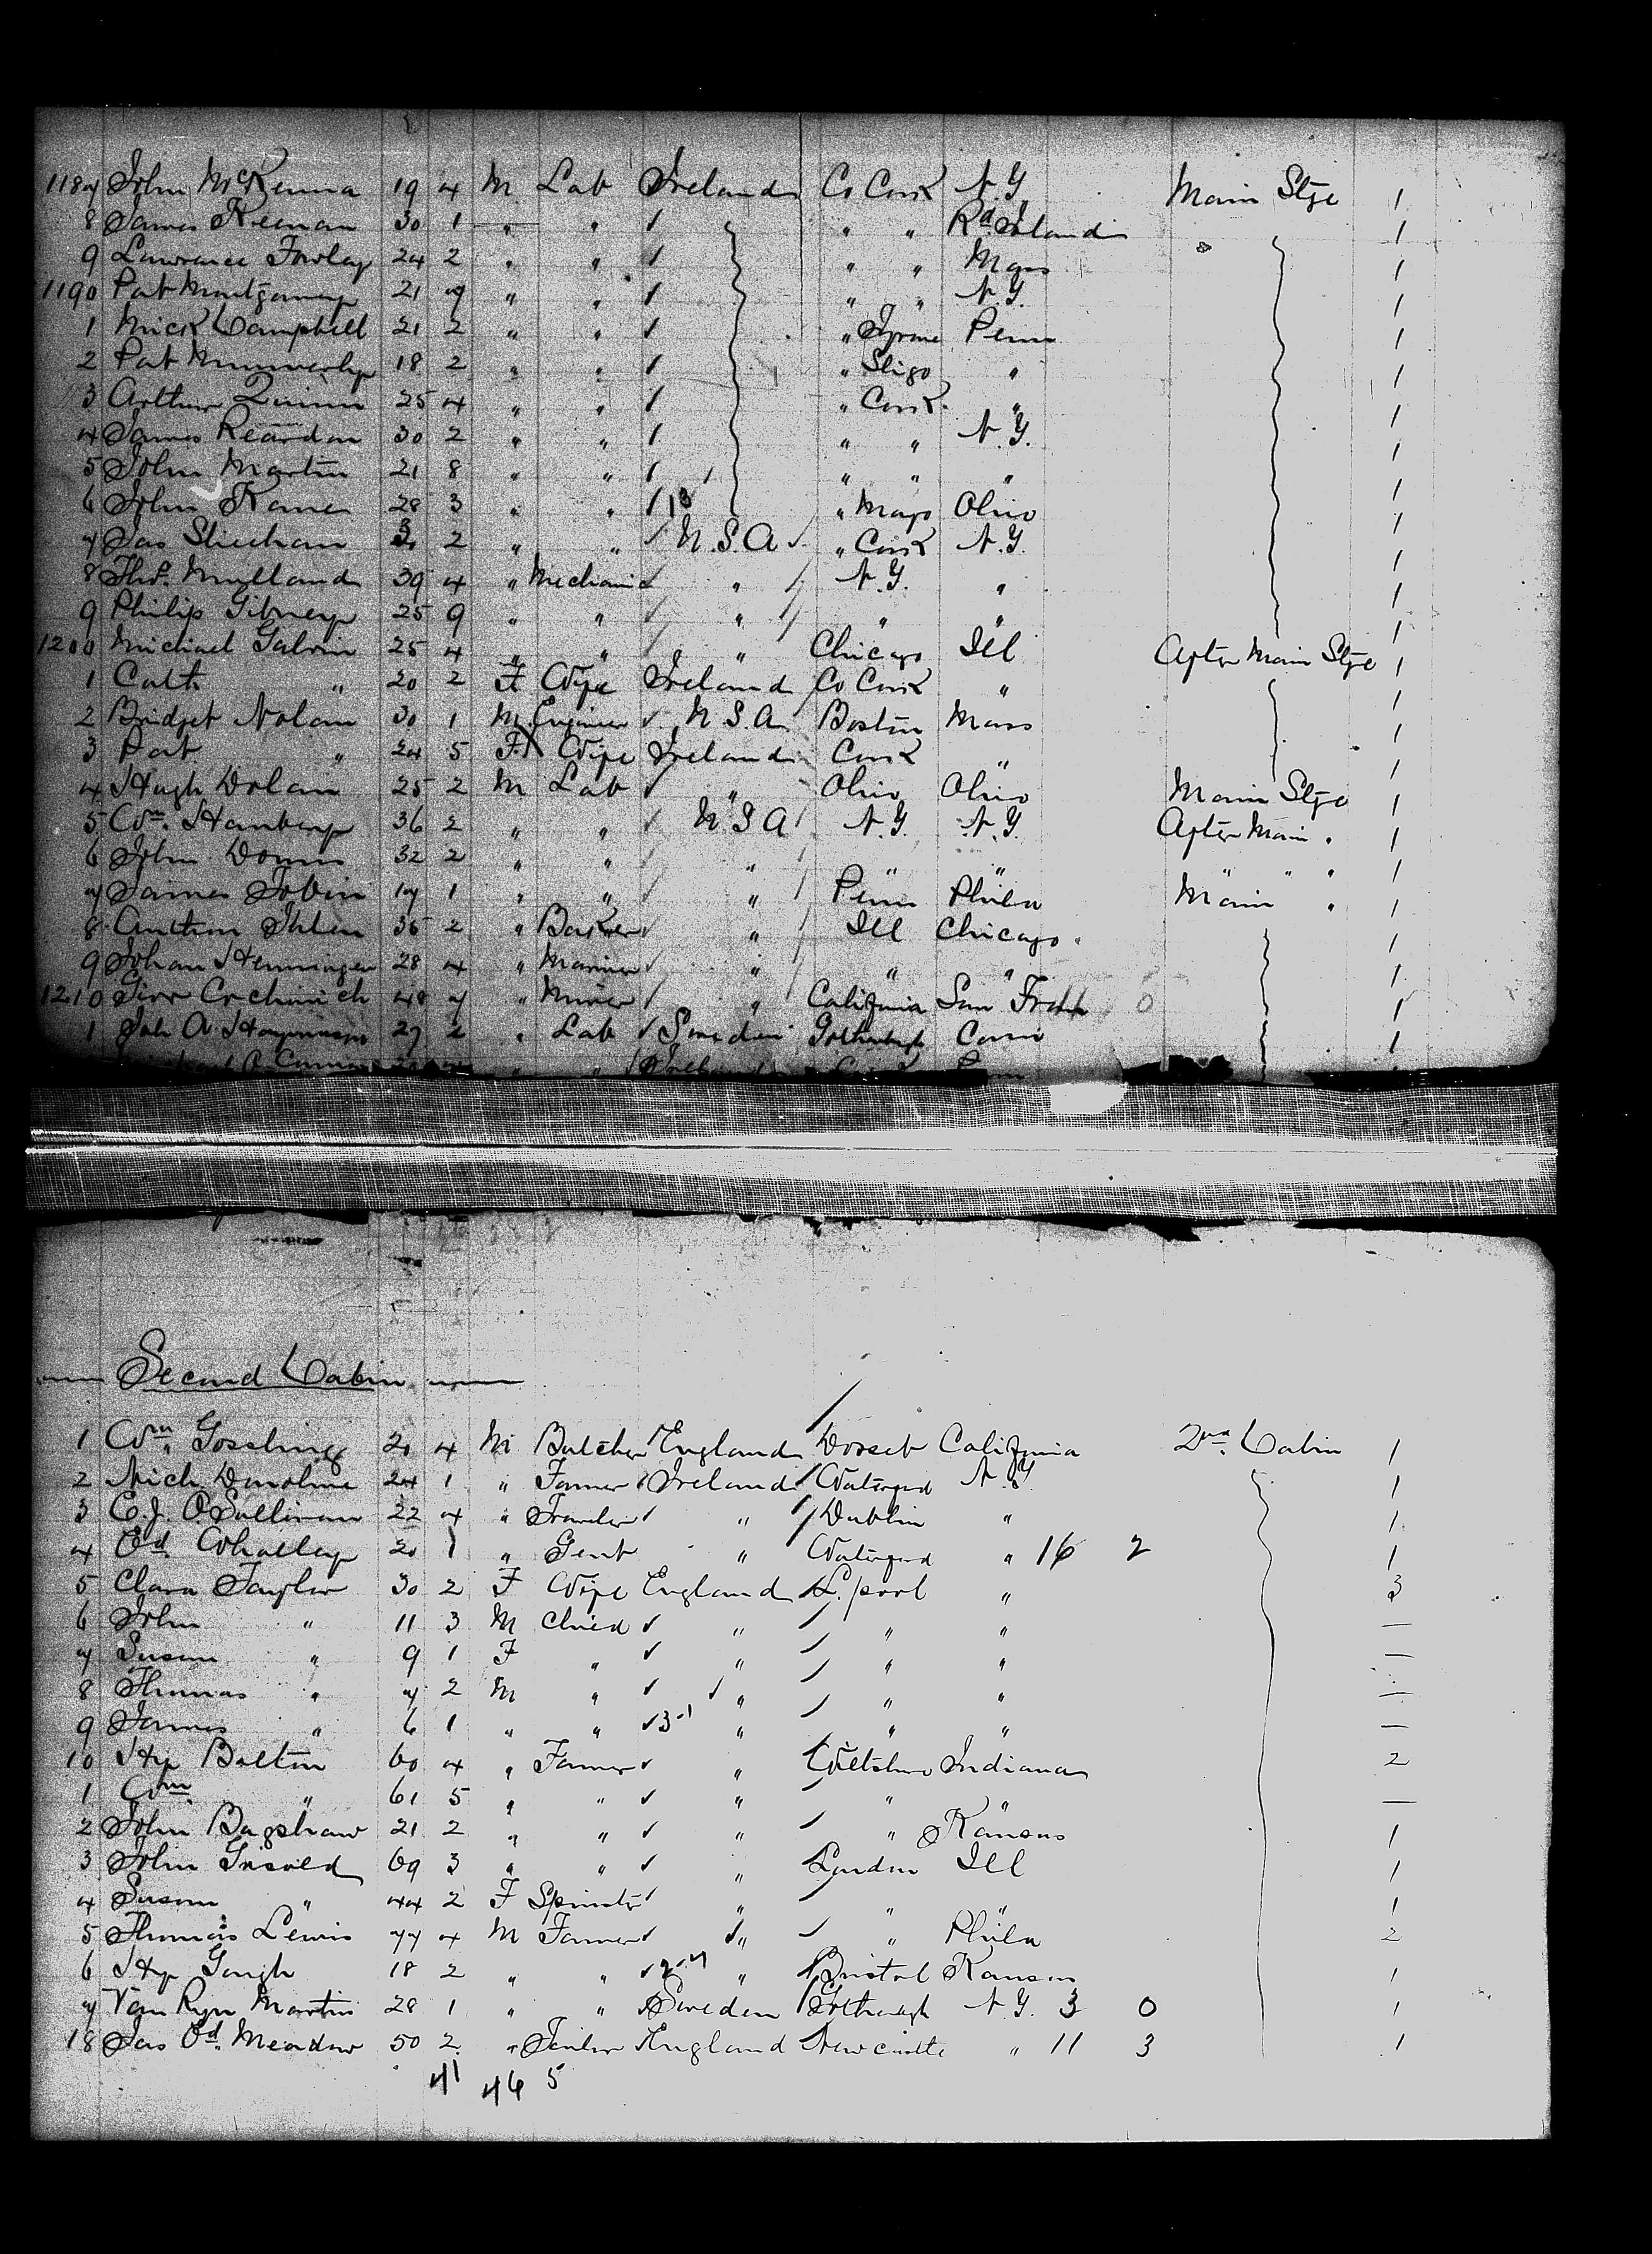 1187 John McKenna 19 4 M Lab Ireland Co Cork N.Y. Main Stge 1
8 James Keenan 30 1 " " " " Rd Island " 1
9 Lawrence 24 2 " " " " Mass 1
1190 Pat Montgomery 21 7 " " " " N.Y. 1
1 Mick Campbell 21 2 " " " Tyrone Penn 1
2 Pat 18 2 " " " Sligo " 1
3 Arthur Quinn 25 4 " " " Cork " 1
4 James Reardon 30 2 " " " " N.Y. 1
5 John Martin 21 8 " " " " " 1
6 John Kane 28 3 " " " Mayo Ohio 1
7 Jas Sheehan 2 " " U.S.A " Cork N.Y. 1
8 Thos. Mulland 39 4 " Mechanic " N.Y. " 1
9 Philip Gibney 25 9 " " " " " 1
1200 Michael Galvin 25 4 " " " Chicago Ill After Main Stge 1
1 Cath " 20 2 F Wife Ireland Co Cork " 1
2 Bridget Nolan 30 1 M Engineer U.S.A. Boston Mass 1
3 Pat " 24 5 F Wife Ireland Cork " 1
4 Hugh Dolan 25 2 M Lab " Ohio Ohio Main Stge 1
5 Wm. Hanbery 36 2 " " U.S.A N.Y. N.Y. After Main " 1
6 John Downs 32 2 " " " " " " " " 1
7 James Tobin 17 1 " " " Penn Phila Main " 1
8 35 2 " Baker " Ill Chicago 1
9 Johan Henningen 28 4 " Mariner " " " 1
1210 48 7 " Miner " California San Fran 0 1
1 Joh A. 27 2 " Lab Sweden Gothenburgh Conn 1
Second Cabin
1 Wm. Gossling 20 4 M Butcher England Dorset California 2nd. Cabin 1
2 Mich 24 1 " Farmer Ireland Waterford N.Y. 1
3 E.J. O'Sullivan 22 4 " Traveler " Dublin " 1
4 Ed. Whalley 20 1 " Gent " Waterford " 16 2 1
5 Clara Taylor 30 2 F Wife England L.pool " 3
6 John " 11 3 M Child " " " —
7 Susan " 9 1 F " " " " —
8 Thomas " 7 2 M " " " " —
9 James " 6 1 " " 3-1 " " " —
10 Hy Bolton 60 4 " Farmer " Wiltshire Indiana 2
1 Wm " 61 5 " " " " " —
2 John Bagshaw 21 2 " " " " Kansas 1
3 John Griswold 69 3 " " " London Ill 1
4 Susan " 44 2 F Spinster " " " 1
5 Thomas Lewis 77 4 M Farmer " " Phila 2
6 Hy Gough 18 2 " " " Bristol Kansas 1
7 Van Ryn Martin 28 1 " " Sweden Gothenburgh N.Y. 3 0 1
18 Jas Ed. Meadow 50 2 " England Newcastle " 11 3 1
41 46 5